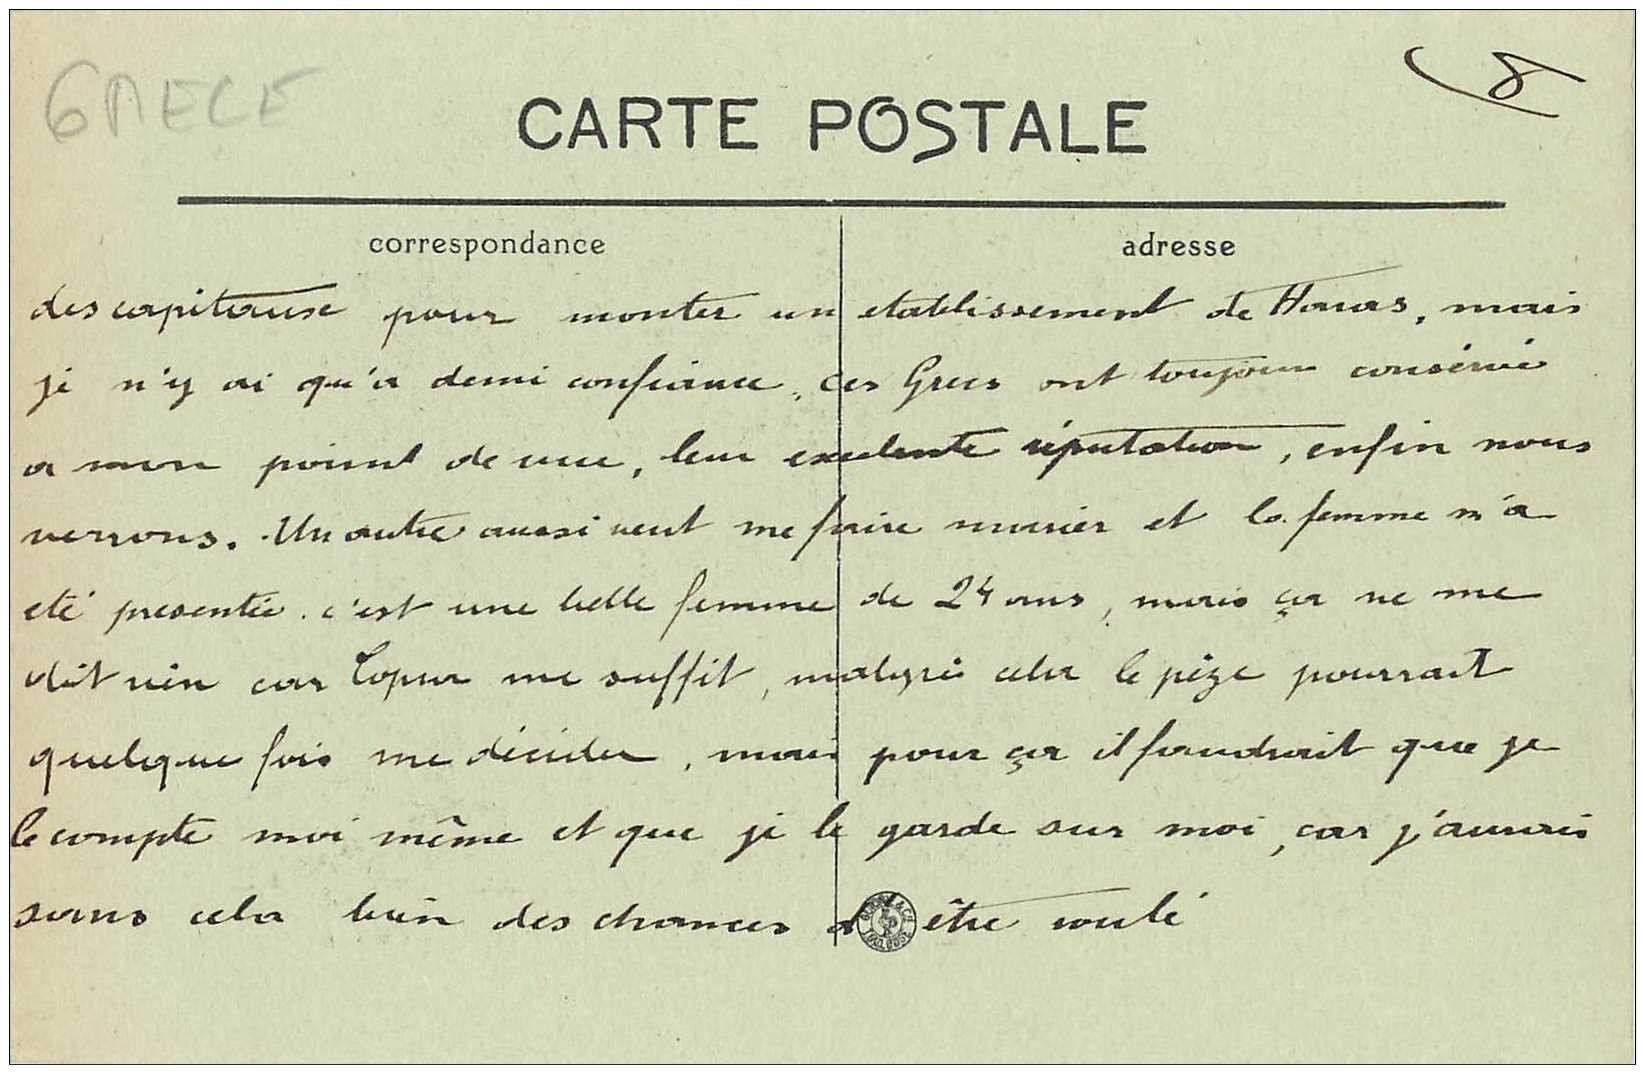 GRECE
8
CARTE POSTALE
correspondance
adresse
des capitause pour monter un etablissement de Haras, mais
je n'y ai qu'a demi confiance, ces Grecs ont toujour conservé
a mon point de vue, leur excelente réputation, enfin nous
verrons. Un autre aussi veut me faire marier et la femme m'a
eté presentée. c'est une belle femme de 24 ans, mais ça ne me
dit rien car me suffit, malgré cela le pèze pourrait
quelque fois me décider, mais pour ça il faudrait que je
le compte moi même et que je le garde sur moi, car j'aurais
sans cela bien des chances d'être roulé